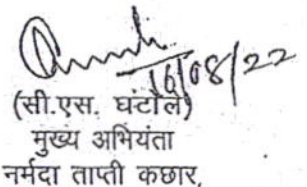 16/08/22
(सी.एस. घंटोले)
मुख्य अभियंता
नर्मदा ताप्ती कछार,